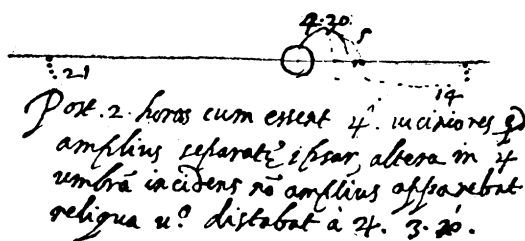 4.20
5
21
14
Post .2. horas cum essent ♃. viciniores
amplius separatę ipsar, altera in ♃
umbrā incidens nō amplius apparebat
reliqua uº distabat à ♃. 3. 20.